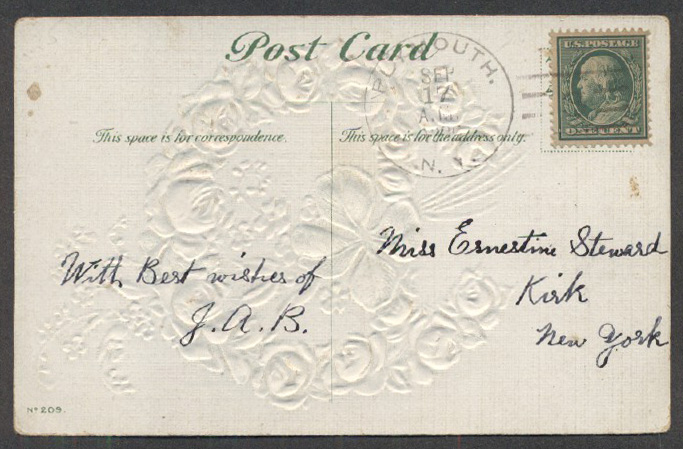 Post Card
PLYMOUTH.
SEP
17
A.M.
N. Y.
U.S. POSTAGE
ONE CENT
This space is for correspondence.
This space is for the address only.
With Best wishes of
J. A. B.
Miss Ernestine Steward
Kirk
New York
No 209.